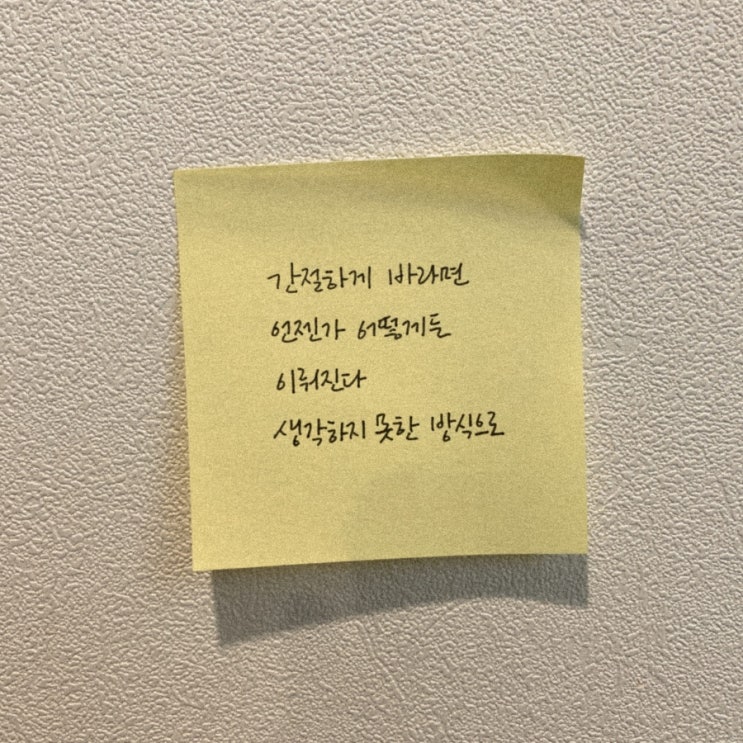 간절하게 바라면
언젠가 어떻게든
이뤄진다
생각하지 못한 방식으로